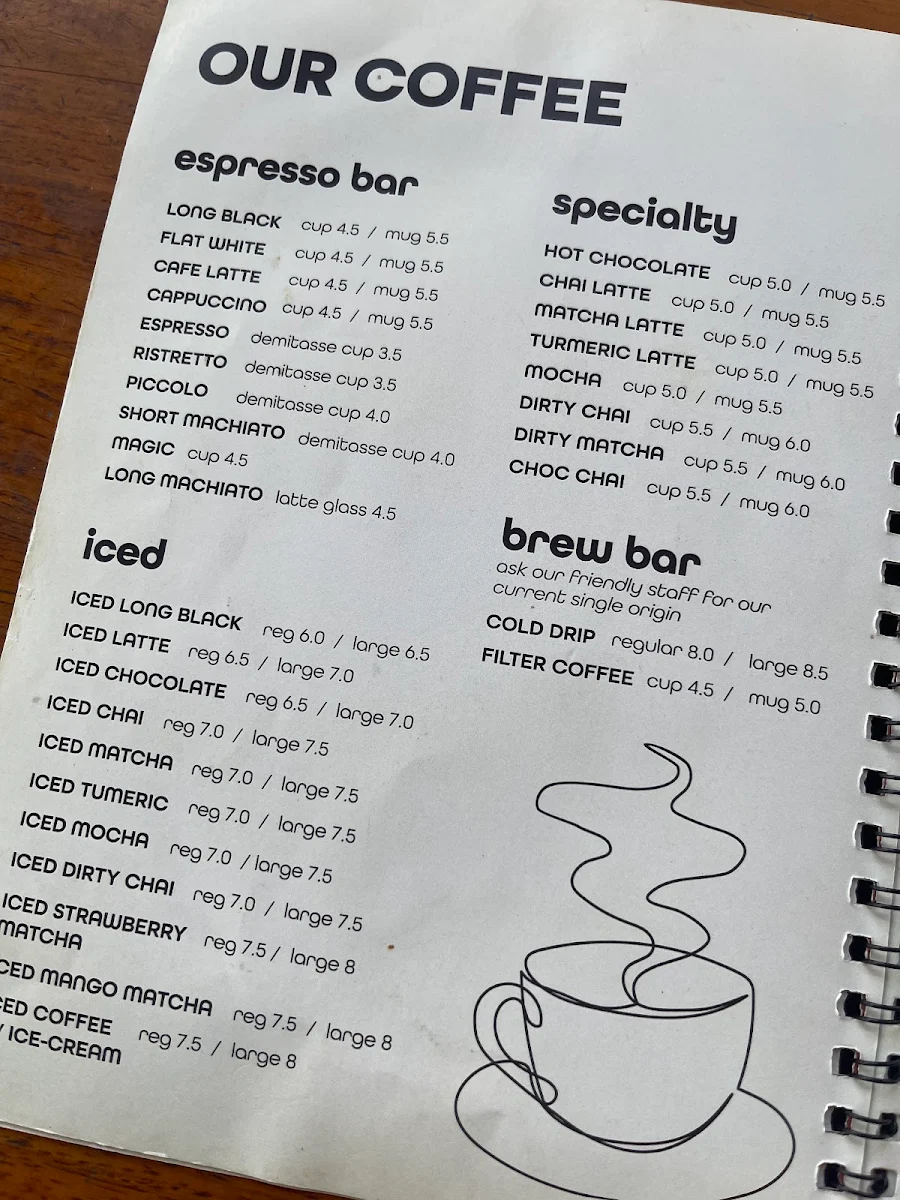 OUR COFFEE
espresso bar
LONG BLACK cup 4.5 / mug 5.5
FLAT WHITE cup 4.5 / mug 5.5
CAFE LATTE cup 4.5 / mug 5.5
CAPPUCCINO cup 4.5 / mug 5.5
ESPRESSO demitasse cup 3.5
RISTRETTO demitasse cup 3.5
PICCOLO demitasse cup 4.0
SHORT MACHIATO demitasse cup 4.0
MAGIC cup 4.5
LONG MACHIATO latte glass 4.5
iced
ICED LONG BLACK reg 6.0 / large 6.5
ICED LATTE reg 6.5 / large 7.0
ICED CHOCOLATE reg 6.5 / large 7.0
ICED CHAI reg 7.0 / large 7.5
ICED MATCHA reg 7.0 / large 7.5
ICED TUMERIC reg 7.0 / large 7.5
ICED MOCHA reg 7.0 / large 7.5
ICED DIRTY CHAI reg 7.0 / large 7.5
ICED STRAWBERRY reg 7.5 / large 8
MATCHA
CED MANGO MATCHA reg 7.5 / large 8
CED COFFEE reg 7.5 / large 8
/ ICE-CREAM
specialty
HOT CHOCOLATE cup 5.0 / mug 5.5
CHAI LATTE cup 5.0 / mug 5.5
MATCHA LATTE cup 5.0 / mug 5.5
TURMERIC LATTE cup 5.0 / mug 5.5
MOCHA cup 5.0 / mug 5.5
DIRTY CHAI cup 5.5 / mug 6.0
DIRTY MATCHA cup 5.5 / mug 6.0
CHOC CHAI cup 5.5 / mug 6.0
brew bar
ask our friendly staff for our
current single origin
COLD DRIP regular 8.0 / large 8.5
FILTER COFFEE cup 4.5 / mug 5.0